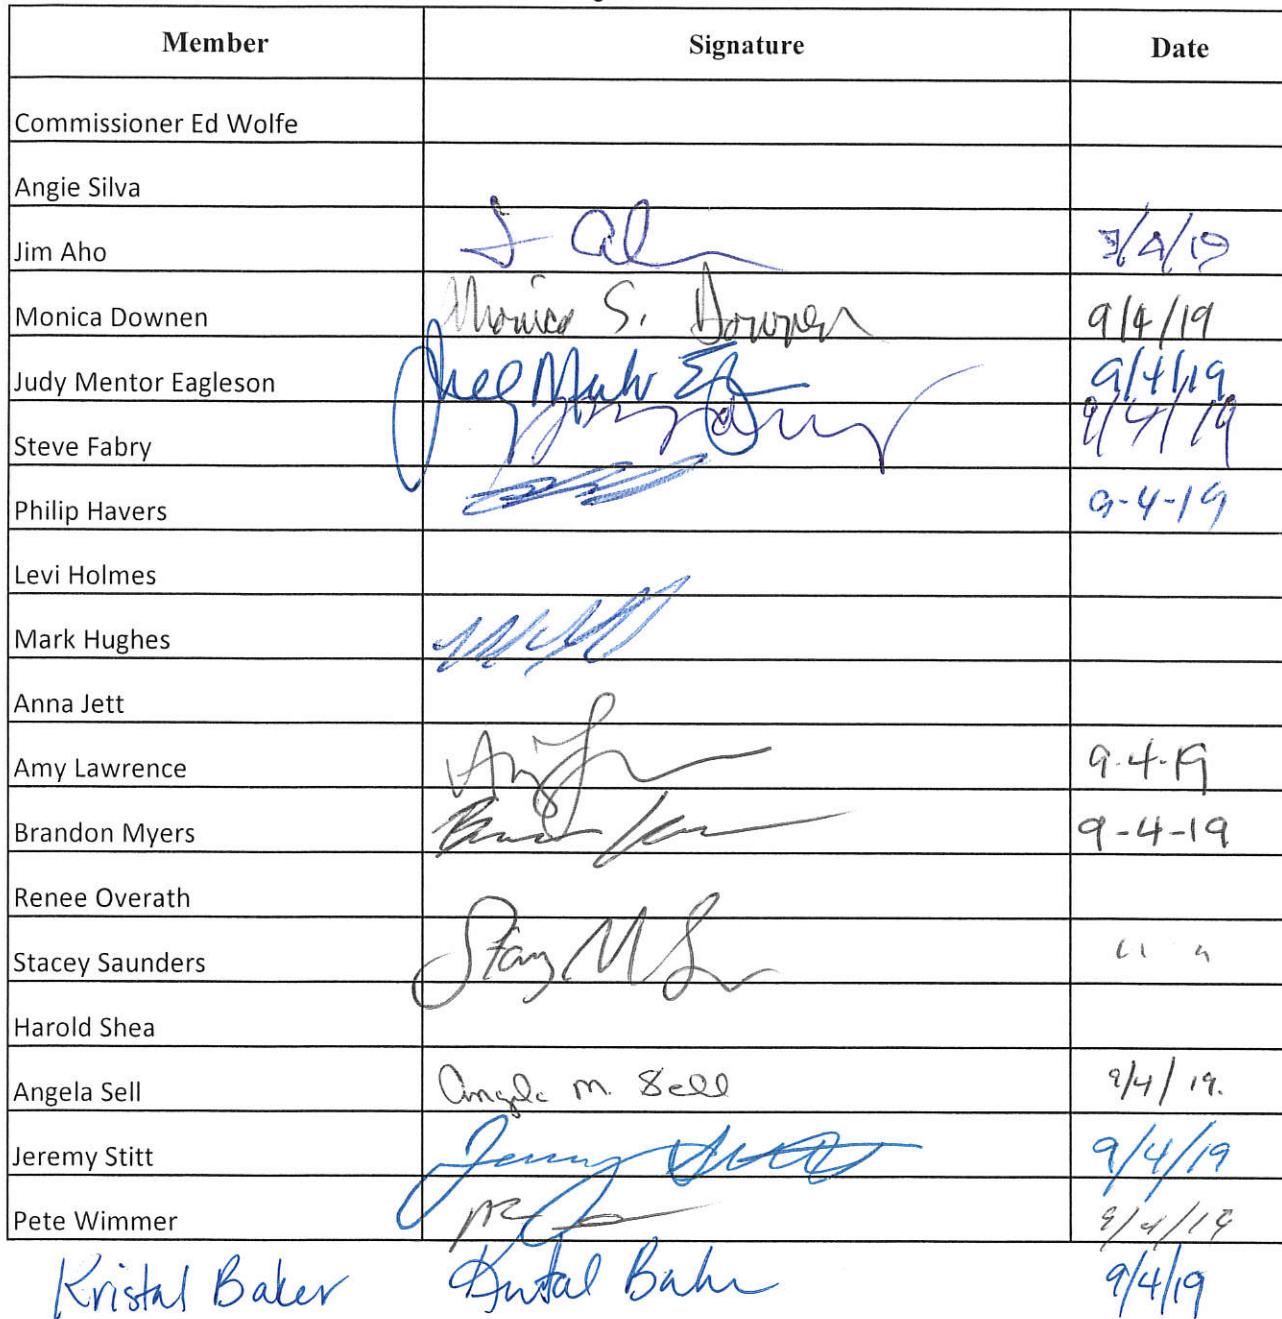 Member Signature Date
Commissioner Ed Wolfe
Angie Silva
Jim Aho
Monica Downen Monica S. Downen 9/4/19
Judy Mentor Eagleson 9/4/19
Steve Fabry 9/4/19
Philip Havers 9-4-19
Levi Holmes
Mark Hughes
Anna Jett
Amy Lawrence 9-4-19
Brandon Myers 9-4-19
Renee Overath
Stacey Saunders
Harold Shea
Angela Sell Angela M. Sell 9/4/19.
Jeremy Stitt Jeremy Stitt 9/4/19
Pete Wimmer 9/4/19
Kristal Baker Kristal Baker 9/4/19